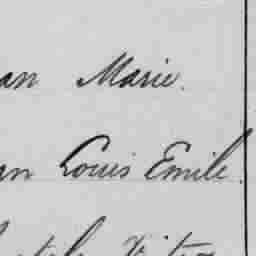 an Marie.
an Louis Emile.